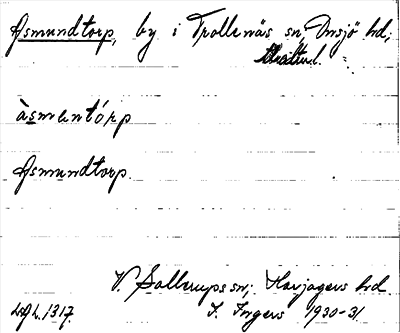 Asmundtorp, by i Trollenäs sn, Onsjö hd,
àsmentórp
Asmundtorp.
V. Sallerups sn; Harjagers hd.
I. Ingers 1930-31